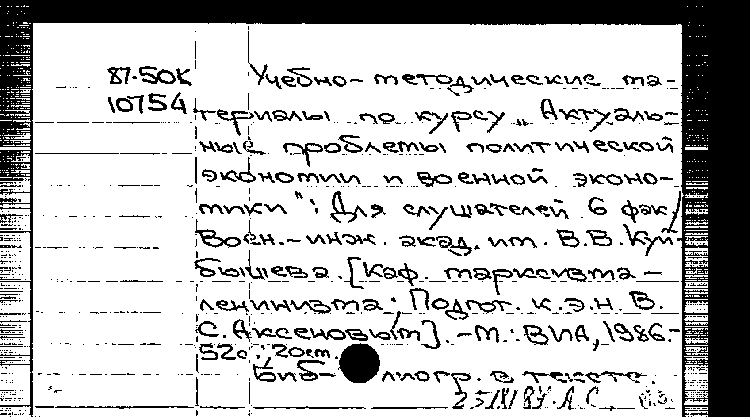 87-50К Учебно-методические ма-
10754 териалы по курсу „Актуаль-
ные проблемы политической
экономии и военной эконо-
мики": Для слушателей 6 фак/
Воен.-инж. акад. им. В.В. Куй-
бышева. [Каф. марксизма-
ленинизма; Подгот. к.э.н. В.
С. Аксеновым]. -М.: ВИА, 1986.-
52с.; 20см.
Биб- лиогр. в тексте.